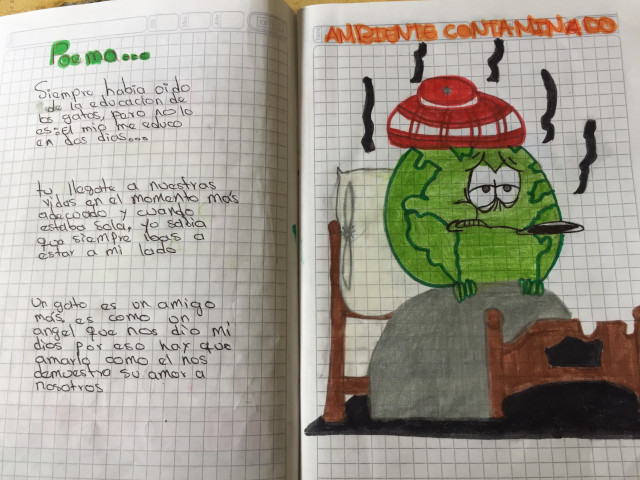 Poema...
Siempre habia oido
de la educacion de
los gatos, pero no lo
es: el mio me educo
en dos dias...
tu, llegate a nuestras
vidas en el momento más
adecuado y cuando
estaba sola, yo sabia
que siempre ibas a
estar a mi lado
Un gato es un amigo
más, es como un
angel que nos dio mi
dios por eso hay que
amarlo como el nos
demuestra su amor a
nosotros
AMBIENTE CONTAMINADO